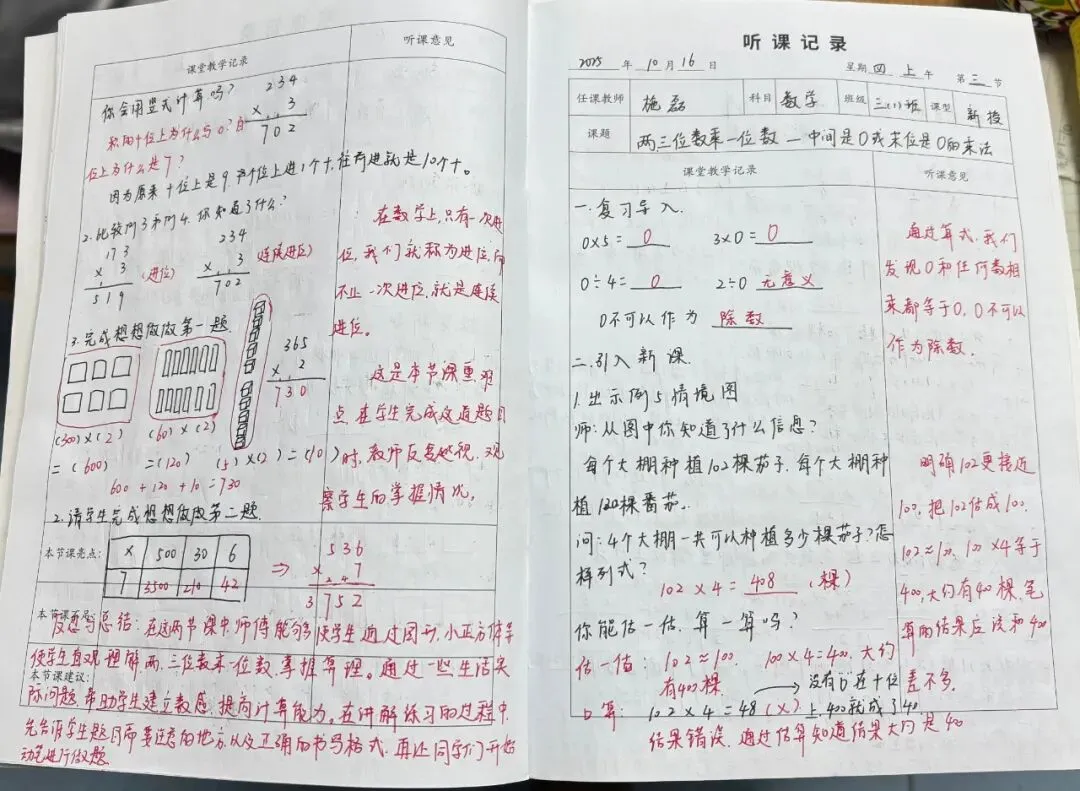 课堂教学记录
听课意见
你会用竖式计算吗?
234
× 3
702
积的十位上为什么写0?百
位上为什么是7?
因为原来十位上是9,再个位上进1个十,往前进就是10个十。
2.比较例3和例4.你知道了什么?
173
× 3
519
(进位)
234
× 3
702
(连续进位)
在数学上,只有一次进
位,我们就称为进位,而
不止一次进位,就是连续
进位。
3.完成想想做做第一题
365
× 2
730
(300)×(2)
(60)×(2)
=(600) =(120) (5)×(2)=(10)
600+120+10=730
这是本节课重难
点在学生完成这道题目
时,教师反复巡视,观
察学生的掌握情况。
2.请学生完成想想做做第二题.
本节课亮点:
× 500 30 6
7 3500 210 42
⇒
536
× 7
2 4
3752
本节课不足:
反思与总结:在这两节课中,师傅能够使学生通过图形,小正方体等
使学生直观理解两、三位数乘一位数,掌握算理。通过一些生活实
本节课建议:
际问题,帮助学生建立数感,提高计算能力。在讲解练习的过程中,
先告诉学生题目所要注意的地方以及正确的书写格式,再让同学们开始
动笔进行做题.
听课记录
2025 年 10 月 16 日 星期 四 上 午 第 三 节
任课教师 施磊 科目 数学 班级 三(1)班 课型 新授
课题 两三位数乘一位数—中间是0或末位是0的乘法
课堂教学记录 听课意见
一.复习导入.
0×5= 0 3×0= 0
0÷4= 0 2÷0 无意义
0不可以作为 除数
通过算式,我们
发现0和任何数相
乘都等于0,0不可以
作为除数.
二.引入新课.
1.出示例5情境图
师:从图中你知道了什么信息?
每个大棚种植102棵茄子,每个大棚种
植120棵番茄.
问:4个大棚一共可以种植多少棵茄子?怎
样列式?
102×4= 408 (棵)
你能估一估,算一算吗?
估一估: 102≈100. 100×4=400. 大约
有400棵.
口算: 102×4=48(×)
没有"0"在十位
上,400就成了40
结果错误,通过估算知道结果大约是400
明确102更接近
100,把102估成100.
102≈100, 100×4等于
400,大约有400棵,笔
算的结果应该和400
差不多.